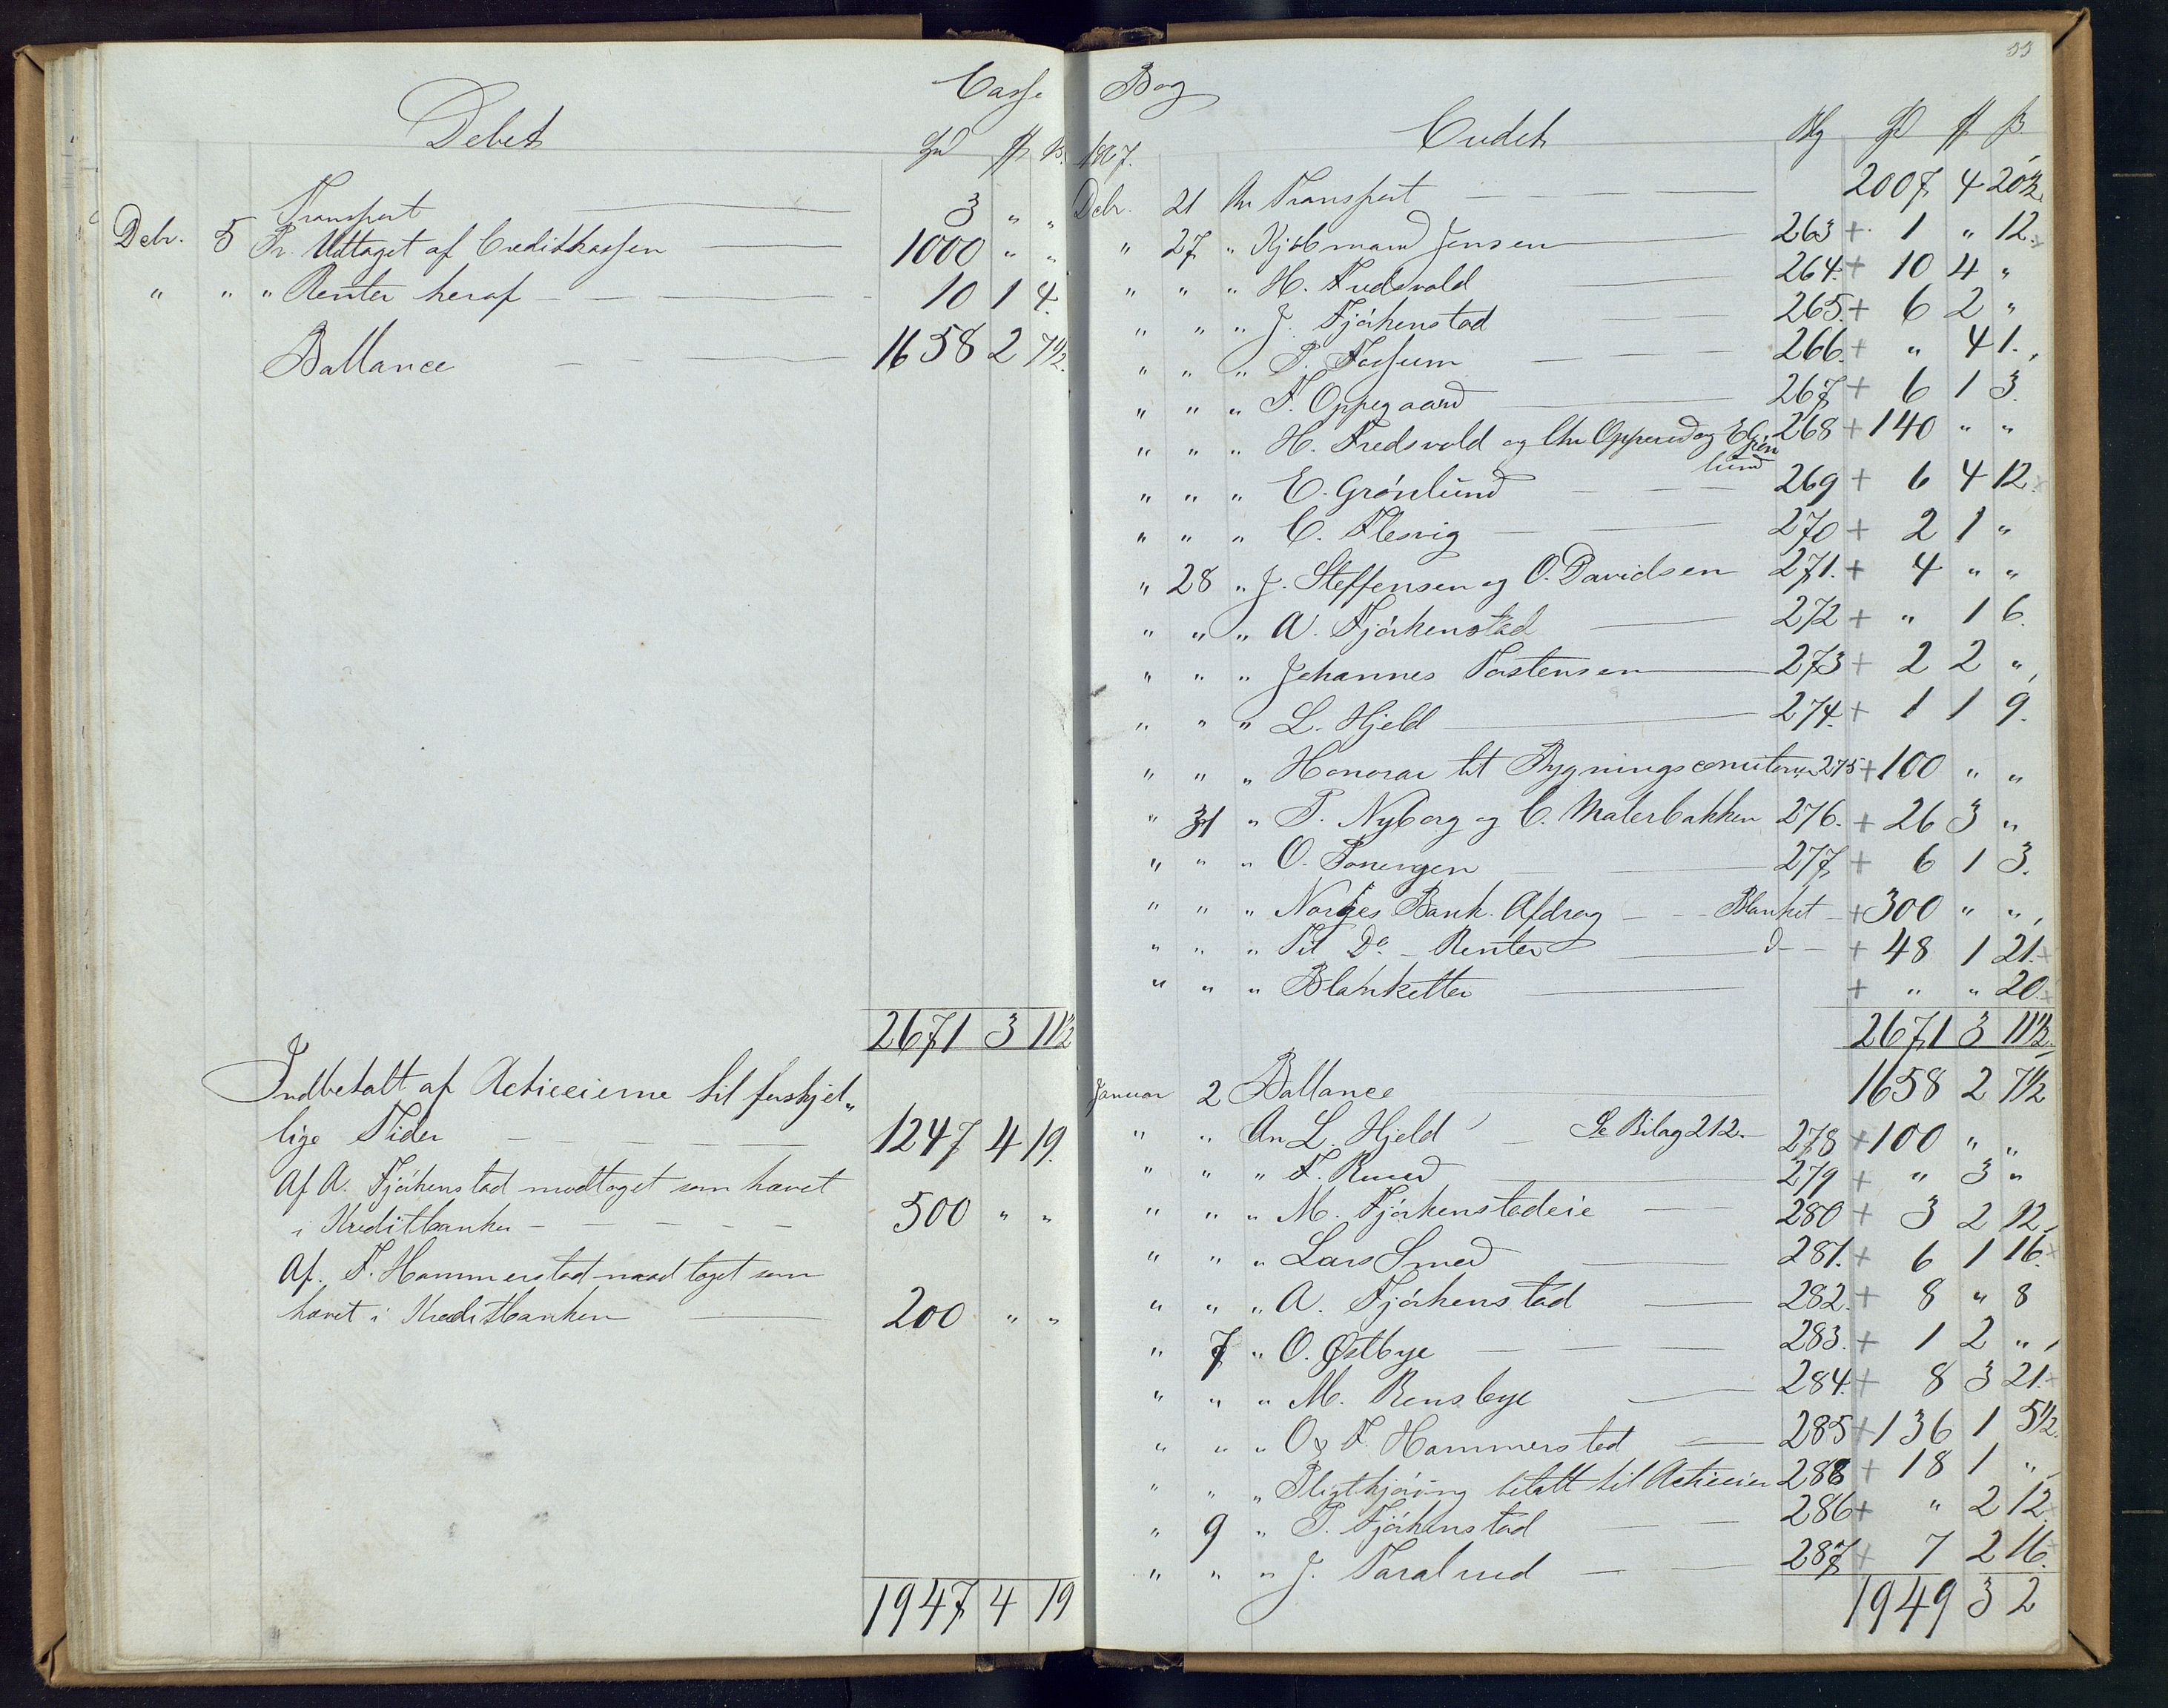 Casse
Debet
Spd ß
Transport 3 " "
Debr. 5 Pr. Udtaget af Creditkassen 1000 " "
" " " Renter heraf 10 1 4.
Ballance 1658 2 7 1/2.
2671 3 11 1/2
Indbetalt af Actieeierne til forskjel„
lige Tider 1247 4 19.
Af A. Fjørkenstad modtaget som hævet
i Kreditbanken 500 " "
Af. F. Hammerstad modtaget som
hævet i Kreditbanken 200 " "
1947 4 19
Bog
33
1867. Credit Blg Spd ß
Debr. 21 An Transport 2007 4 20 1/2.
" 27 " Kjøbmand Jensen 263 + 1 " 12.
" " " H. Fredsvold 264. + 10 4 "
" " " J. Fjørkenstad 265. + 6 2 "
" " " P. Fossum 266. + " 4 1.
" " " T. Oppegaard 267 + 6 1 3.
" " " H. Fredsvold og Chr Opperud og E Grøn 268 + 140 " "
lund
" " " E. Grønlund 269 + 6 4 12.
" " " C. Flesvig 270 + 2 1 "
" 28 " J. Steffensen og O. Davidsen 271. + 4 " "
" " " A. Fjørkenstad 272 + " 1 6.
" " " Johannes Torstensen 273 + 2 2 "
" " " L. Hjeld 274. + 1 1 9.
" " " Honorar til Bygningscomiteen 275 + 100 " "
" 31 " P. Nyborg og C. Malerbakken 276. + 26 3 "
" " " O. 277 + 6 1 3.
" " " Norges Bank. Afdrag - - Blanket - + 300 " "
" " " Til Do. - Renter d - - + 48 1 21.
" " " Blanketter + " " 20.
2671 3 11 1/2.
Januar 2 Ballance 1658 2 7 1/2
" " An L. Hjeld - Se Bilag 212. 278 + 100 " "
" " " F. Ruud 279 + " 3 "
" " " M. Fjørkenstadeie 280 + 3 2 12
" " " Lars Smed 281. + 6 1 16.
" " " A. Fjørkenstad 282. + 8 " 8
" 7 " O. Østbye 283. + 1 2 "
" " " M. Rensbye 284. + 8 3 21.
" " " O & F. Hammerstad 285 + 136 1 5 1/2.
" " " Pligtkjøring betalt til Actieeier 288 + 18 1 "
" 9 " P. Fjørkenstad 286 + " 2 12.
" " " J. Taralrud 287 + 7 2 16.
1949 3 2